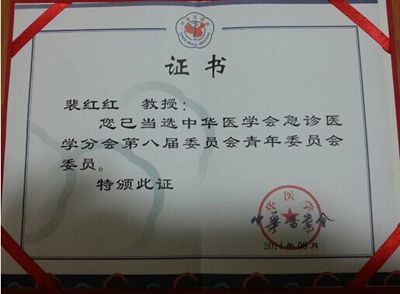 证书
裴红红 教授：
您已当选中华医学会急诊医
学分会第八届委员会青年委员会
委员。
特颁此证
中华医学会
2014年08月